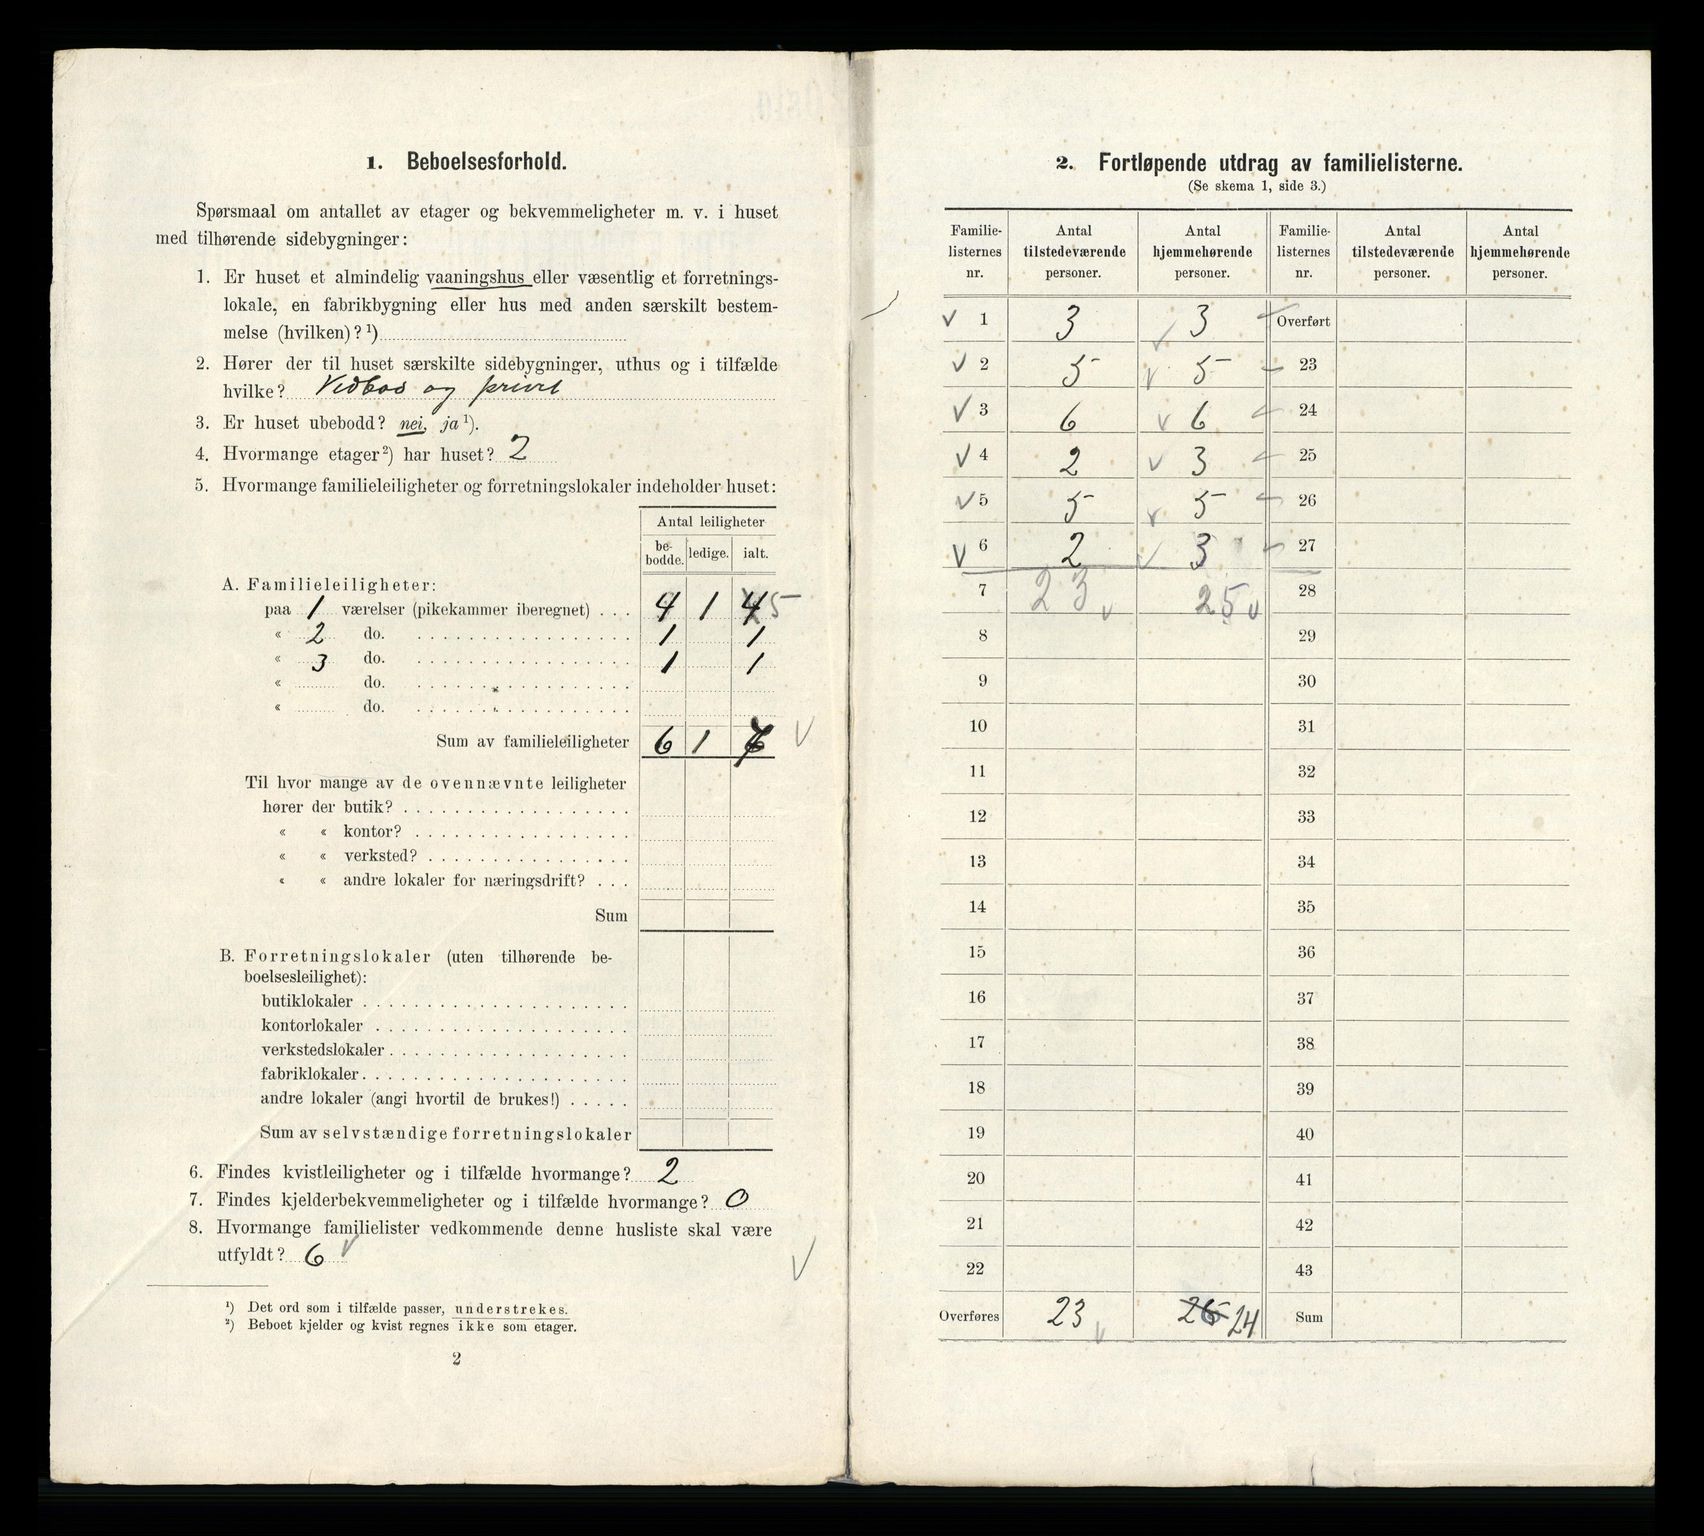 1. Beboelsesforhold.
Spørsmaal om antallet av etager og bekvemmeligheter m. v. i huset
med tilhørende sidebygninger:
1. Er huset et almindelig vaaningshus eller væsentlig et forretnings-
lokale, en fabrikbygning eller hus med anden særskilt bestem-
melse (hvilken)? ¹)
2. Hører der til huset særskilte sidebygninger, uthus og i tilfælde
hvilke? Vedbod og privet
3. Er huset ubebodd? nei, ja ¹).
4. Hvormange etager ²) har huset? 2
5. Hvormange familieleiligheter og forretningslokaler indeholder huset:
Antal leiligheter
be-bodde. ledige. ialt.
A. Familieleiligheter:
paa 1 værelser (pikekammer iberegnet) . . . 4 1 4 5
« 2 do. 1 1
« 3 do. 1 1
« do.
« do.
Sum av familieleiligheter 6 1 7
Til hvor mange av de ovennævnte leiligheter
hører der butik?
« « kontor?
« « verksted?
« « andre lokaler for næringsdrift?
Sum
B. Forretningslokaler (uten tilhørende be-
boelsesleilighet):
butiklokaler
kontorlokaler
verkstedslokaler
fabriklokaler
andre lokaler (angi hvortil de brukes!)
Sum av selvstændige forretningslokaler
6. Findes kvistleiligheter og i tilfælde hvormange? 2
7. Findes kjelderbekvemmeligheter og i tilfælde hvormange? 0
8. Hvormange familielister vedkommende denne husliste skal være
utfyldt? 6
¹) Det ord som i tilfælde passer, understrekes.
²) Beboet kjelder og kvist regnes ikke som etager.
2
2. Fortløpende utdrag av familielisterne.
(Se skema 1, side 3.)
Familie-listernes nr. Antal tilstedeværende personer. Antal hjemmehørende personer. Familie-listernes nr. Antal tilstedeværende personer. Antal hjemmehørende personer.
1 3 3 Overført
2 5 5 23
3 6 6 24
4 2 3 25
5 5 5 26
6 2 3 27
7 23 25 28
8 29
9 30
10 31
11 32
12 33
13 34
14 35
15 36
16 37
17 38
18 39
19 40
20 41
21 42
22 43
Overføres 23 26 24 Sum